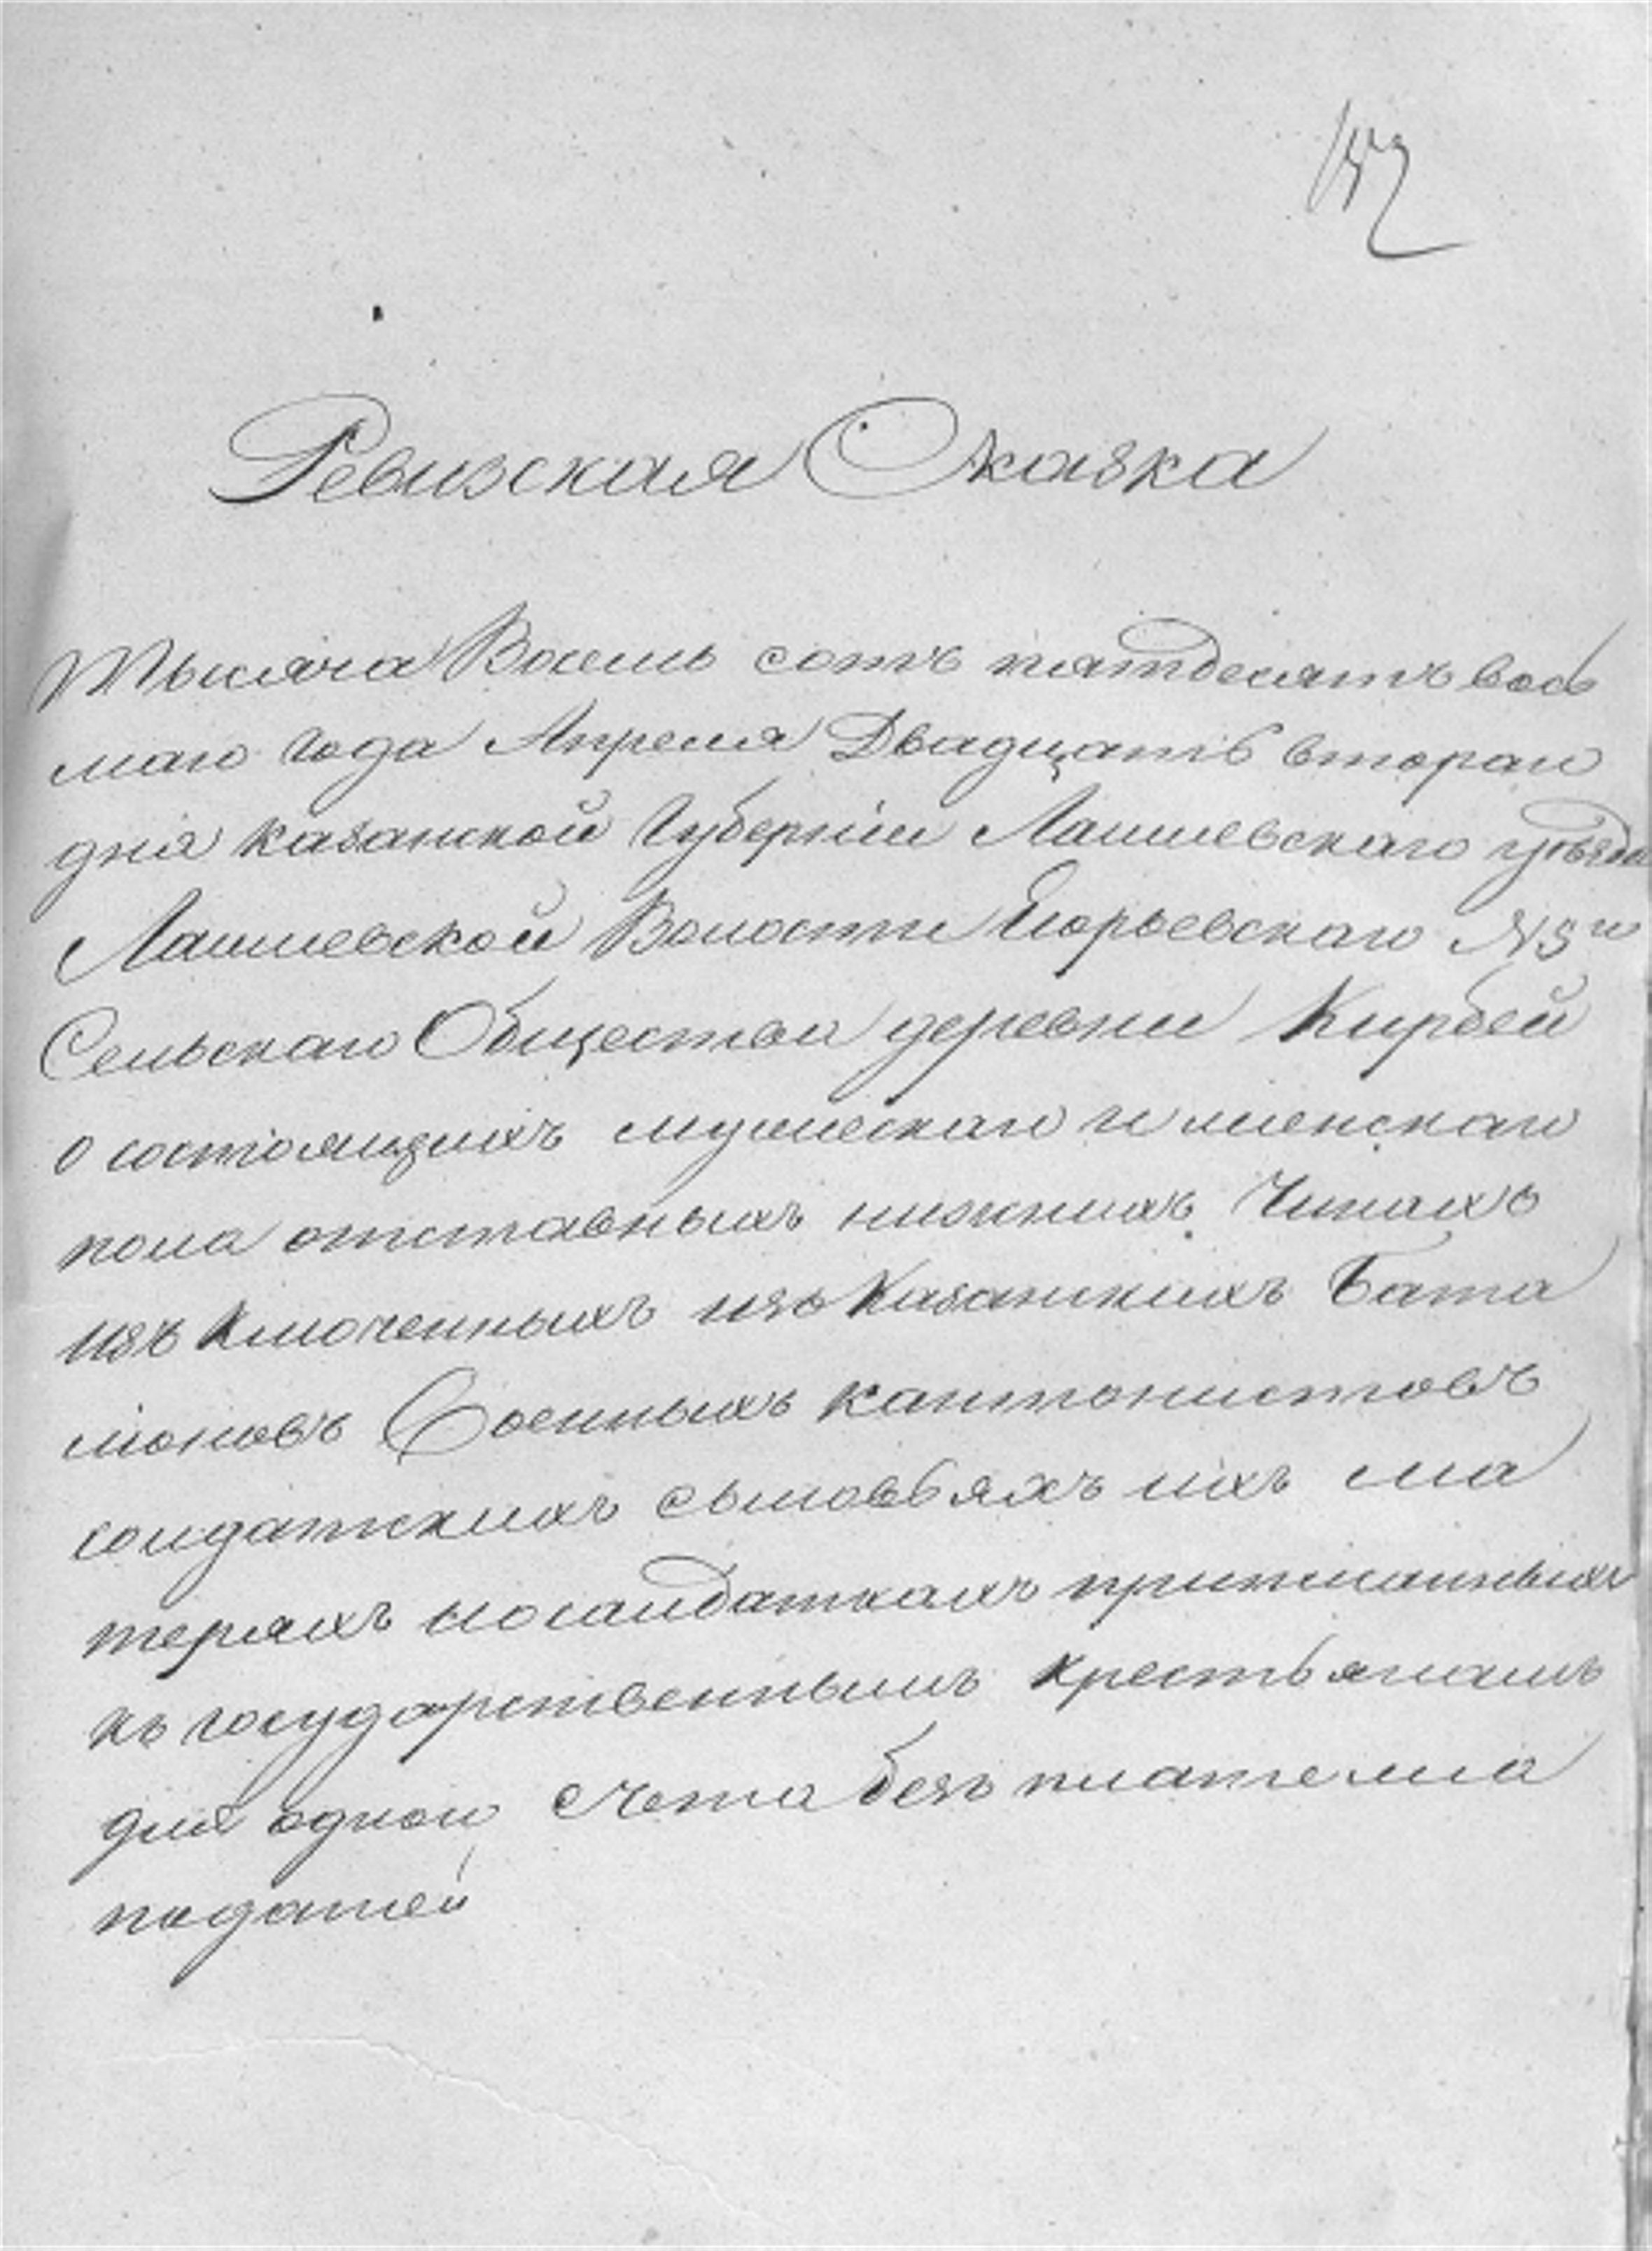 152
Ревизская Сказка
Тысяча Восемь сотъ пятдесятъ вось
маго года Апреля Двадцать втораго
дня казанской Губерніи Лаишевскаго уѣзда
Лаишевской Волости Егорьевскаго №5го
Сельскаго Общества деревни Кирбей
о состоящихъ мужескаго и женскаго
пола отставныхъ нижнихъ Чинахъ
изъ Ключенныхъ изъ Казанскихъ Бата
ліоновъ Военныхъ кантонистовъ
солдатскихъ сыновьяхъ ихъ ма
теряхъ и солдаткахъ приписанныхъ
къ государственнымъ крестьянамъ
для одного счета безъ платежа
податей